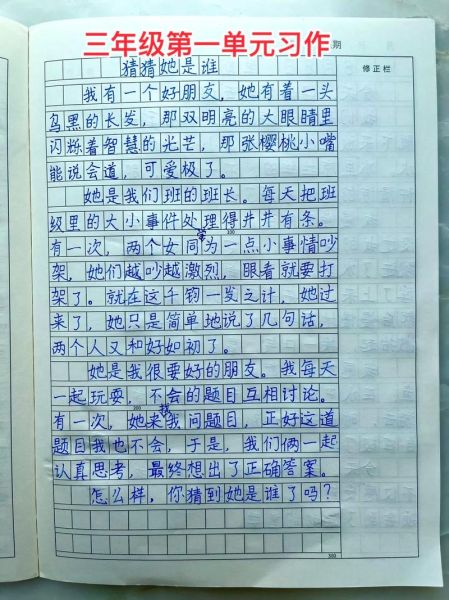 三年级第一单元习作
期
修正栏
猜猜她是谁
我有一个好朋友，她有着一头
乌黑的长发，那双明亮的大眼睛里
闪烁着智慧的光芒，那张樱桃小嘴
能说会道，可爱极了。
她是我们班的班长。每天把班
级里的大小事件处理得井井有条。
有一次，两个女同学为一点小事情吵
100
架，她们越吵越激烈，眼看就要打
架了。就在这千钧一发之计，她过
来了，她只是简单地说了几句话，
两个人又和好如初了。
她是我很要好的朋友。我每天
一起玩耍，不会的题目互相讨论。
200
有一次，她来找我问题目，正好这道
题目我也不会，于是，我们俩一起
认真思考，最终想出了正确答案。
怎么样，你猜到她是谁了吗？
300